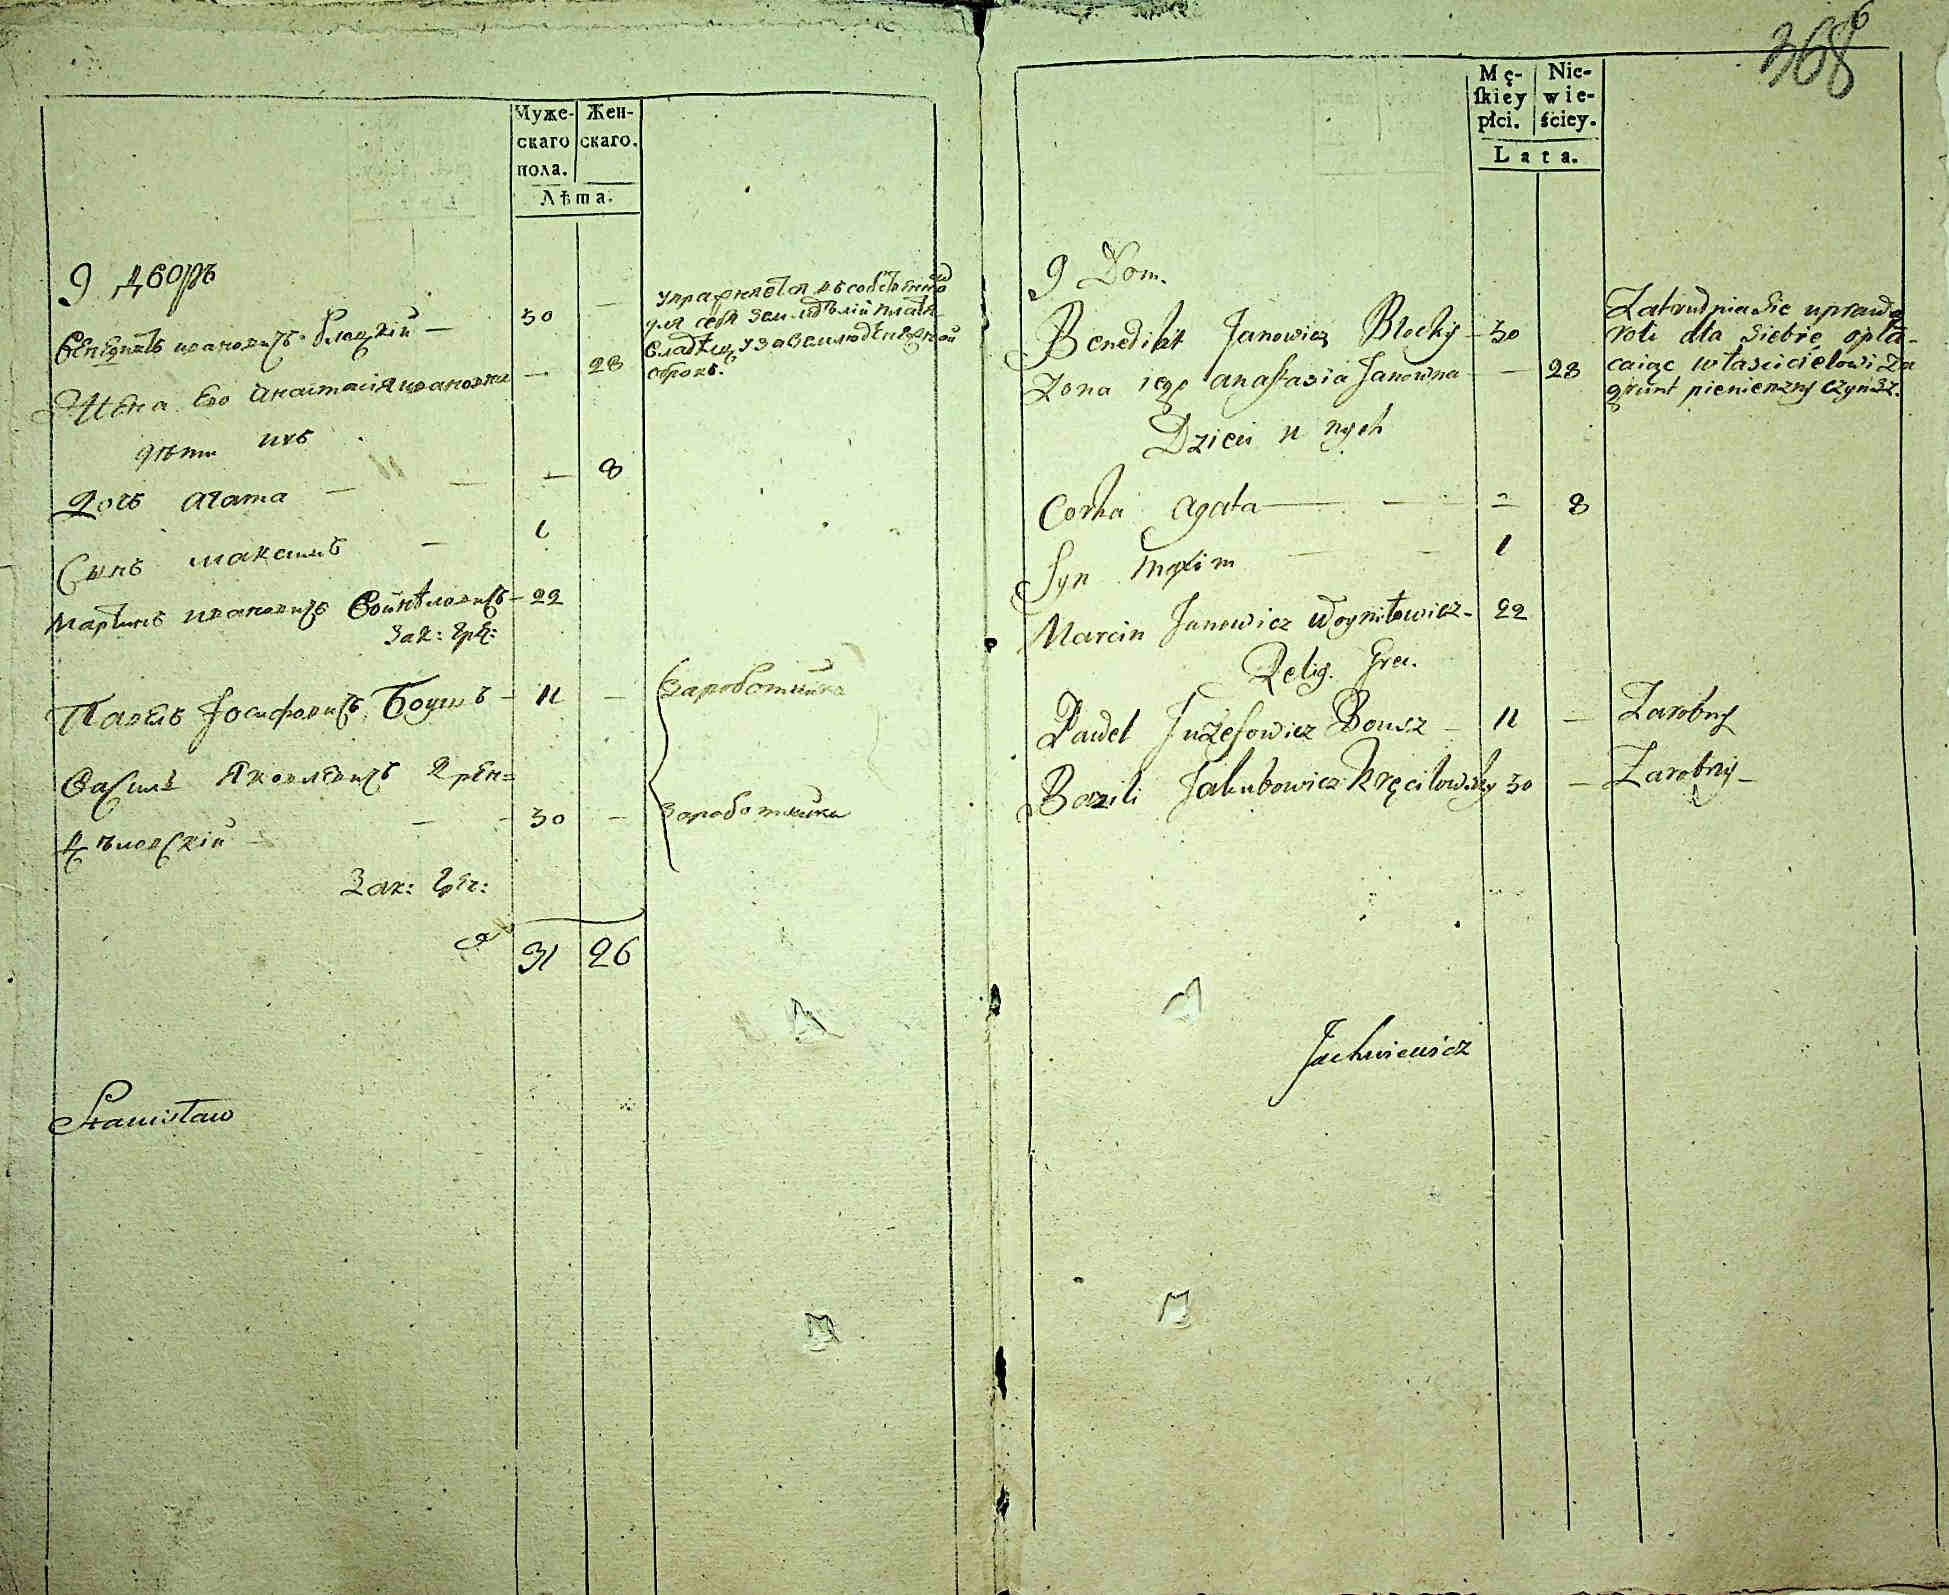 Муже- Жен-
скаго скаго.
пола.
Лѣта.
9 дворъ
Бенедиктъ Ивановичъ Блоцкій — 30 —
Жена Его Анастасія Ивановна — 28
дѣти ихъ
Дочь Агата — — — 8
Сынъ Максимъ — 1
Мартинъ Ивановичъ Войниловичъ — 22
Зак: гре:
Павелъ Іосифовичъ Боушъ — 11 —
Василь Яковлевичъ Крен=
цѣловскій — — 30 —
Зак: гре:
31 26
упражняется въ собственно
для себя земледѣліи плотя
владѣльцу за землю денежной
оброкъ.
Заработника
Заработника
Stanisław
368
6
Mę- Nie-
ſkiey wie-
płci. ściey.
Lata.
9 Dom.
Benedikt Janowicz Blocky — 30
Zona iego Anastasia Janowna — — 28
Dzieci u nych
Corka Agata — — — 8
Syn Maxim — — 1
Marcin Janowicz Woyniłowicz — 22
Relig. Grec.
Pawel Juzefowicz Bousz — 11 — Zarobny
Bazili Jakubowicz Kręcilowsky 30 — Zarobny —
Zatrudnia sie uprawą
roli dla siebie opła-
caiąc właścicielowi za
grunt pienienzny czynsz.
Jachniewicz